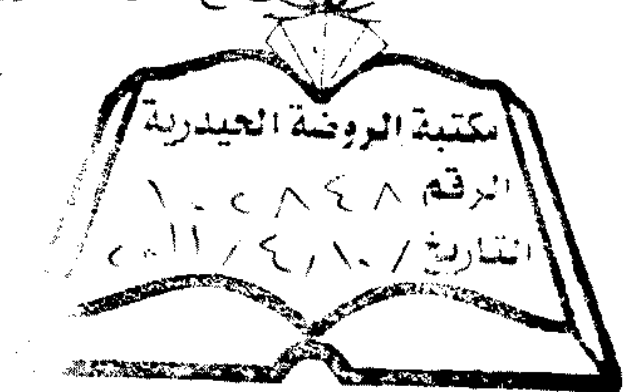 مكتبة الروضة الحيدرية
الرقم ١٠٢٨٤٨
التاريخ / ١٠ / ٤ / ٢٠١١